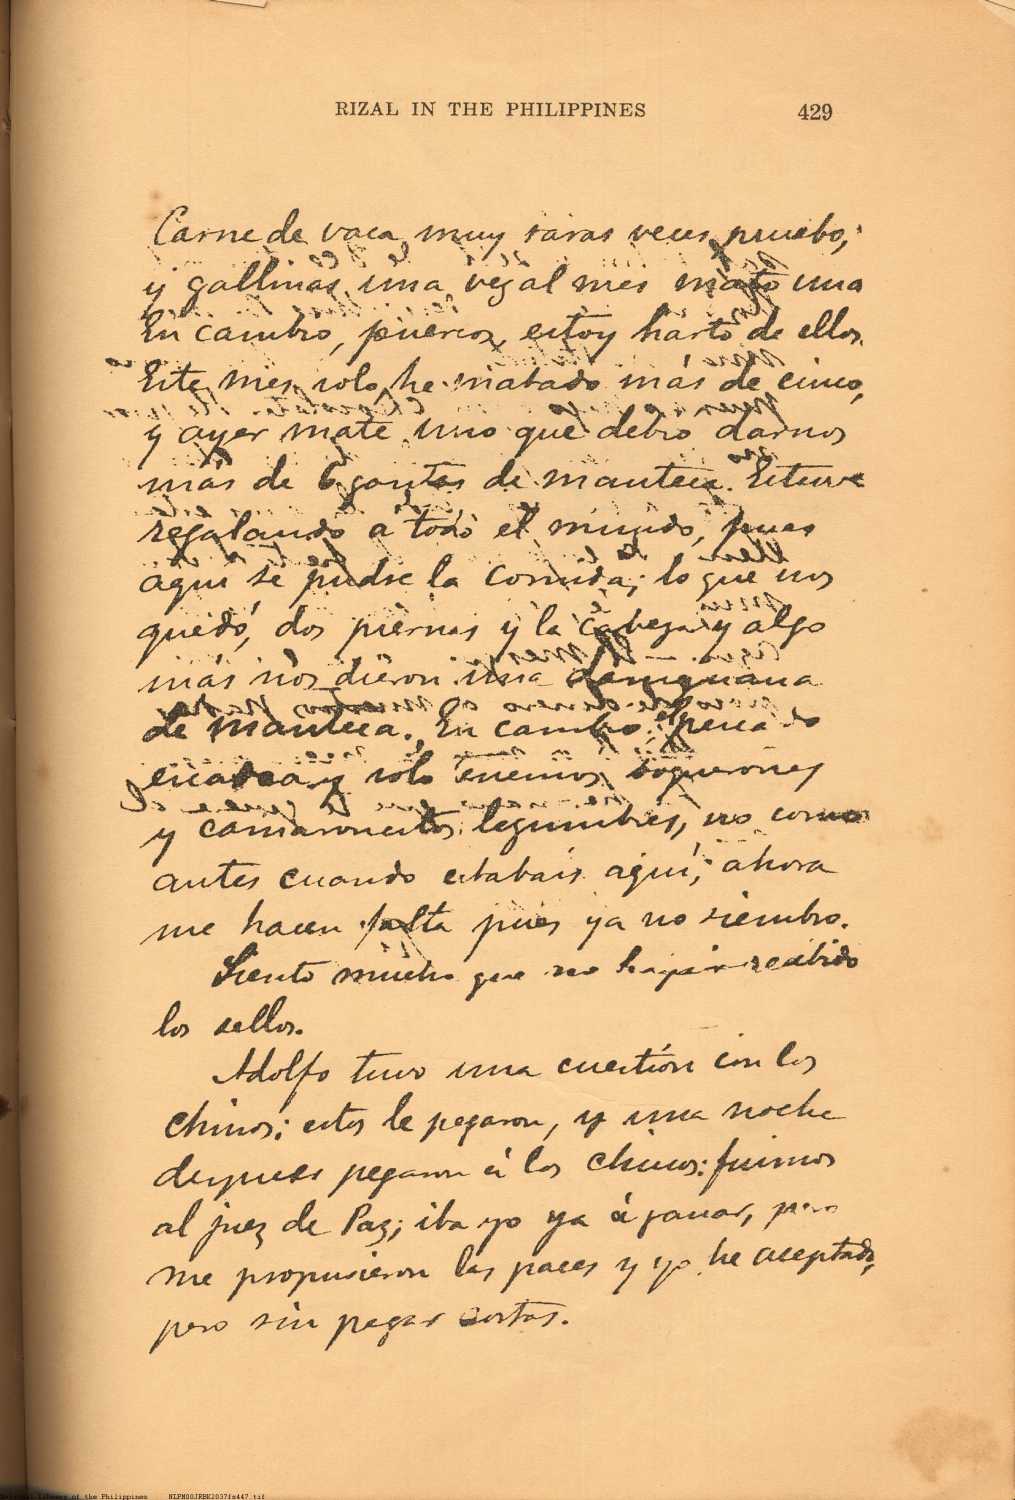 RIZAL IN THE PHILIPPINES 429
Carne de vaca muy raras veces pruebo,
y gallinas, una vez al mes mato una
En cambio, puercos, estoy harto de ellos.
Este mes solo, he matado más de cinco,
y ayer maté uno que debió darnos
más de 6 gantas de manteca. Estuve
regalando á todo el mundo, pues
aquí se pudre la comida; lo que nos
quedó, dos piernas y la cabeza y algo
más nos dieron una damajuana
de manteca. En cambio, el pescado
escasea y solo tenemos boquerones
y camaroncitos. legumbres, no como
antes cuando estabais aquí; ahora
me hacen falta pues ya no siembro.
Siento mucho que no hayais recibido
los sellos.
Adolfo tuvo una cuestión con los
chinos; estos le pegaron, y una noche
despues pegaron á los chinos: fuimos
al juez de Paz; iba yo ya á ganar, pero
me propusieron las paces y yo he aceptado,
pero sin pagar costas.
National Library of the Philippines NLPN00JRBK2037fs447.tif